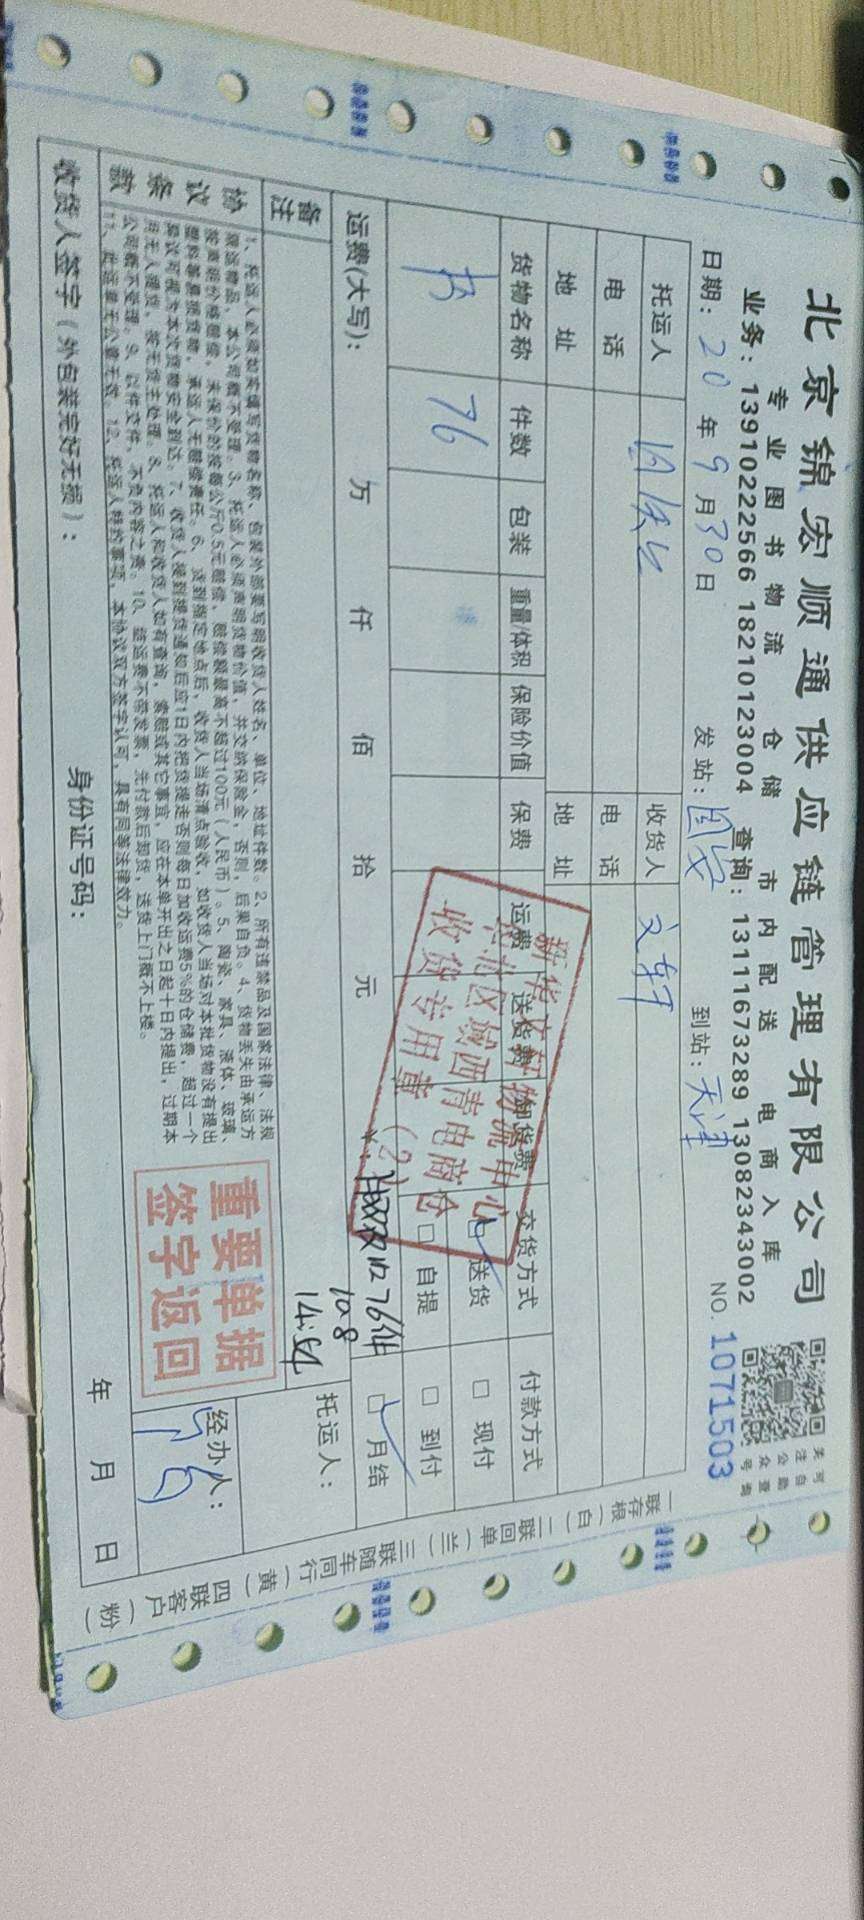 北京锦宏顺通供应链管理有限公司
专业图书物流 仓储 市内配送 电商入库
业务：13910222566 18210123004 查询：13111673289 13082343002
关注公众号
可自助查询
日期：20年9月30日 发站：固安 到站：天津 NO. 1071503
托运人 收货人 文轩
电话 电话
地址 地址
货物名称 件数 包装 重量/体积 保险价值 保费 运费 送货费 卸货费 交货方式 付款方式
书 76 □送货 □现付
□自提 □到付
运费(大写)： 万 仟 佰 拾 元 ¥： □月结
76件
10.8
14:54
新华文轩物流中心
西青电商仓
收货专用章（2）
备注
托运人：
协议条款
1、托运人必须如实填写货物名称、包装外部要写明收货人姓名、单位、地址件数。2、所有违禁品及国家法律、法规
限运物品，本公司概不受理。3、托运人必须声明货物价值，并交纳保险金，否则，后果自负。4、货物丢失由承运方
按声明价格赔偿，未保价的按每公斤0.5元赔偿，赔偿额最高不超过100元（人民币）。5、陶瓷、家具、液体、玻璃、
塑料等易损货物，承运人无赔偿责任。6、货到指定地点后，收货人当场清点验收，如收货人当场对本批货物没有提出
异议可视为本次货物安全到达。7、收货人接到提货通知后应1日内把货提走否则每日加收运费5%的仓储费，超过一个
月无人提货，按无货主处理。8、托运人和收货人如有查询，索赔或其它事宜，应在本单开出之日起十日内提出，过期本
公司概不受理。9、以件交件，不负内容之责。10、结运费不带发票，先付款后卸货，送货上门概不上楼。
11、此运单无公章无效。12、托运人特约事项，本协议双方签字认可，具有同等法律效力。
重要单据
签字返回
经办人：
收货人签字（外包装完好无损）： 身份证号码： 年 月 日
一联存根（白）二联回单（兰）三联随车同行（黄）四联客户（粉）